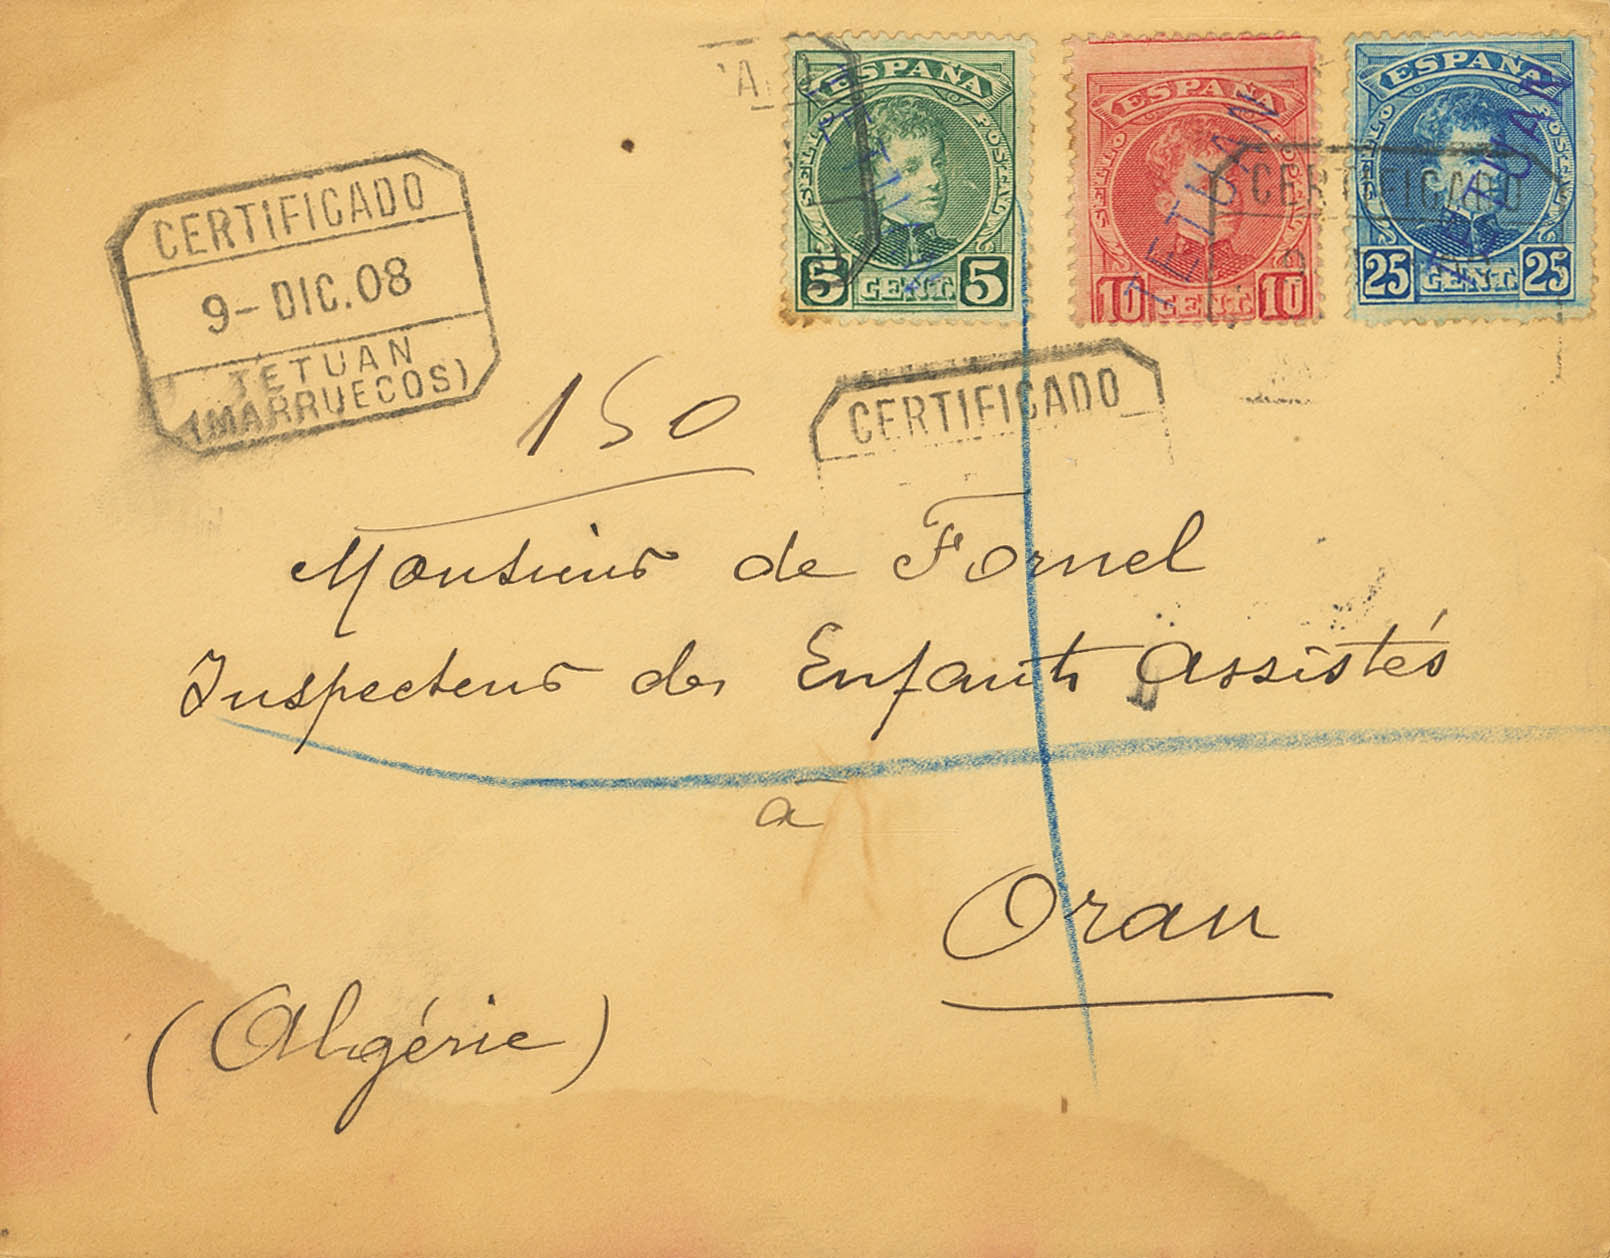 ESPAÑA
SELLO POSTAL
5 CENT. 5
ESPAÑA
SELLO POSTAL
10 CENT. 10
TETUAN
ESPAÑA
SELLO POSTAL
25 CENT. 25
TETUAN
CERTIFICADO
CERTIFICADO
9- DIC. 08
TETUAN
(MARRUECOS)
CERTIFICADO
150
Monsieur de Fornel
Inspecteur des Enfants Assistés
à
Oran
(Algérie)